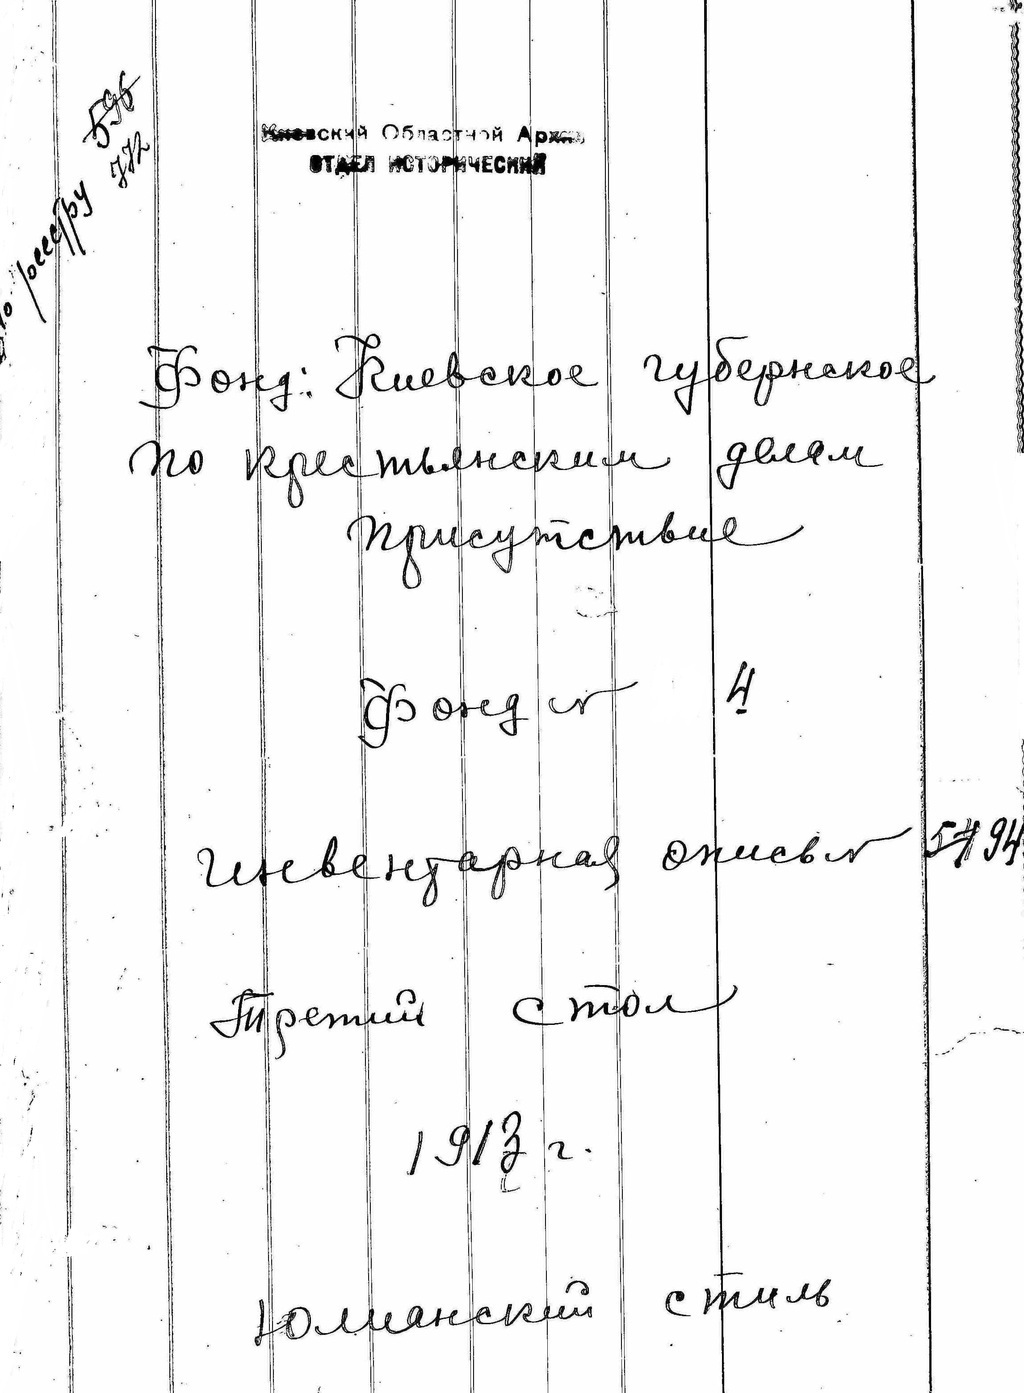 По реестру 596
772
Киевский Областной Архив
ОТДЕЛ ИСТОРИЧЕСКИЙ
Фонд: Киевское губернское
по крестьянским делам
присутствие
Фонд № 4
Инвентарная опись №
Третий стол
1913 г.
Юлианский стиль